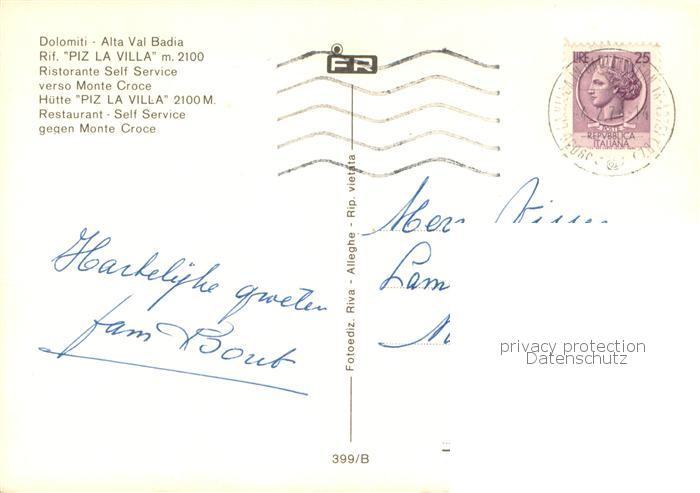 Dolomiti - Alta Val Badia
Rif. "PIZ LA VILLA" m. 2100
Ristorante Self Service
verso Monte Croce
Hütte "PIZ LA VILLA" 2100 M.
Restaurant - Self Service
gegen Monte Croce
FR
LIRE 25
POSTE
REPVBBLICA
ITALIANA
Hartelijke groeten
fam Bout
Fotoediz. Riva - Alleghe - Rip. vietata
Lam
privacy protection
Datenschutz
399/B